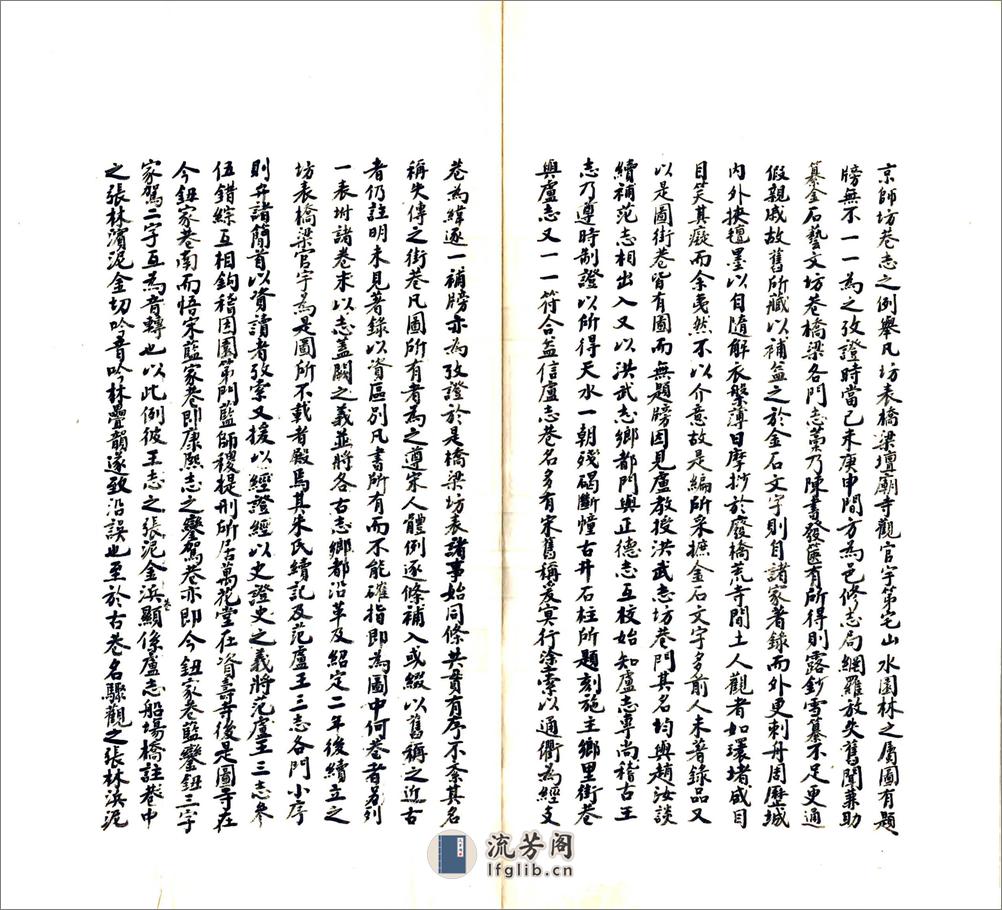 京師坊巷志之例舉凡坊表橋梁壇廟寺觀官宇第宅山水園林之屬圖有題
牓無不一一為之攷證時當己未庚申間方為邑修志局網羅放失舊聞兼助
纂金石藝文坊巷橋梁各門志藁乃陳書發篋有所得則露鈔雪纂不足更通
假親戚故舊所藏以補益之於金石文字則自諸家著錄而外更刺舟周歷城
內外挾氊墨以自隨解衣槃薄日摩挲於廢橋荒寺間土人觀者如環堵咸目
目笑其癡而余夷然不以介意故是編所采摭金石文字多前人未著錄品又
以是圖街巷皆有圖而無題牓因見盧教授洪武志坊巷門其名均與趙汝談
續補范志相出入又以洪武志鄉都門與正德志互校始知盧志專尚稽古王
志乃遵時制證以所得天水一朝殘碣斷幢古井石柱所題刻施主鄉里街巷
與盧志又一一符合益信盧志巷名多有宋舊稱爰冥行塗索以通衢為經支
巷為緯逐一補牓亦為攷證於是橋梁坊表諸事始同條共貫有序不紊其名
稱失傳之街巷凡圖所有者為之遵宋人體例逐條補入或綴以舊稱之近古
者仍註明未見著錄以資區別凡書所有而不能確指即為圖中何巷者另列
一表坿諸卷末以志蓋闕之義並將各古志鄉都沿革及紹定二年後續立之
坊表橋梁官宇為是圖所不載者殿焉其朱氏續記及范盧王三志各門小序
則弁諸簡首以資讀者攷索又援以經證經以史證史之義將范盧王三志參
伍錯綜互相鉤稽因園第門藍師稷提刑所居萬花堂在資壽寺後是圖寺在
今鈕家巷南而悟宋藍家巷即康熙志之鑾駕巷亦即今鈕家巷藍鑾鈕三字
家駕二字互為音轉也以此例彼王志之張泥金浜巷顯係盧志船場橋註巷中
之張林濱泥金切吟音吟林疊韻遂致沿誤也至於古巷名驟觀之張林浜泥
流芳阁
lfglib.cn